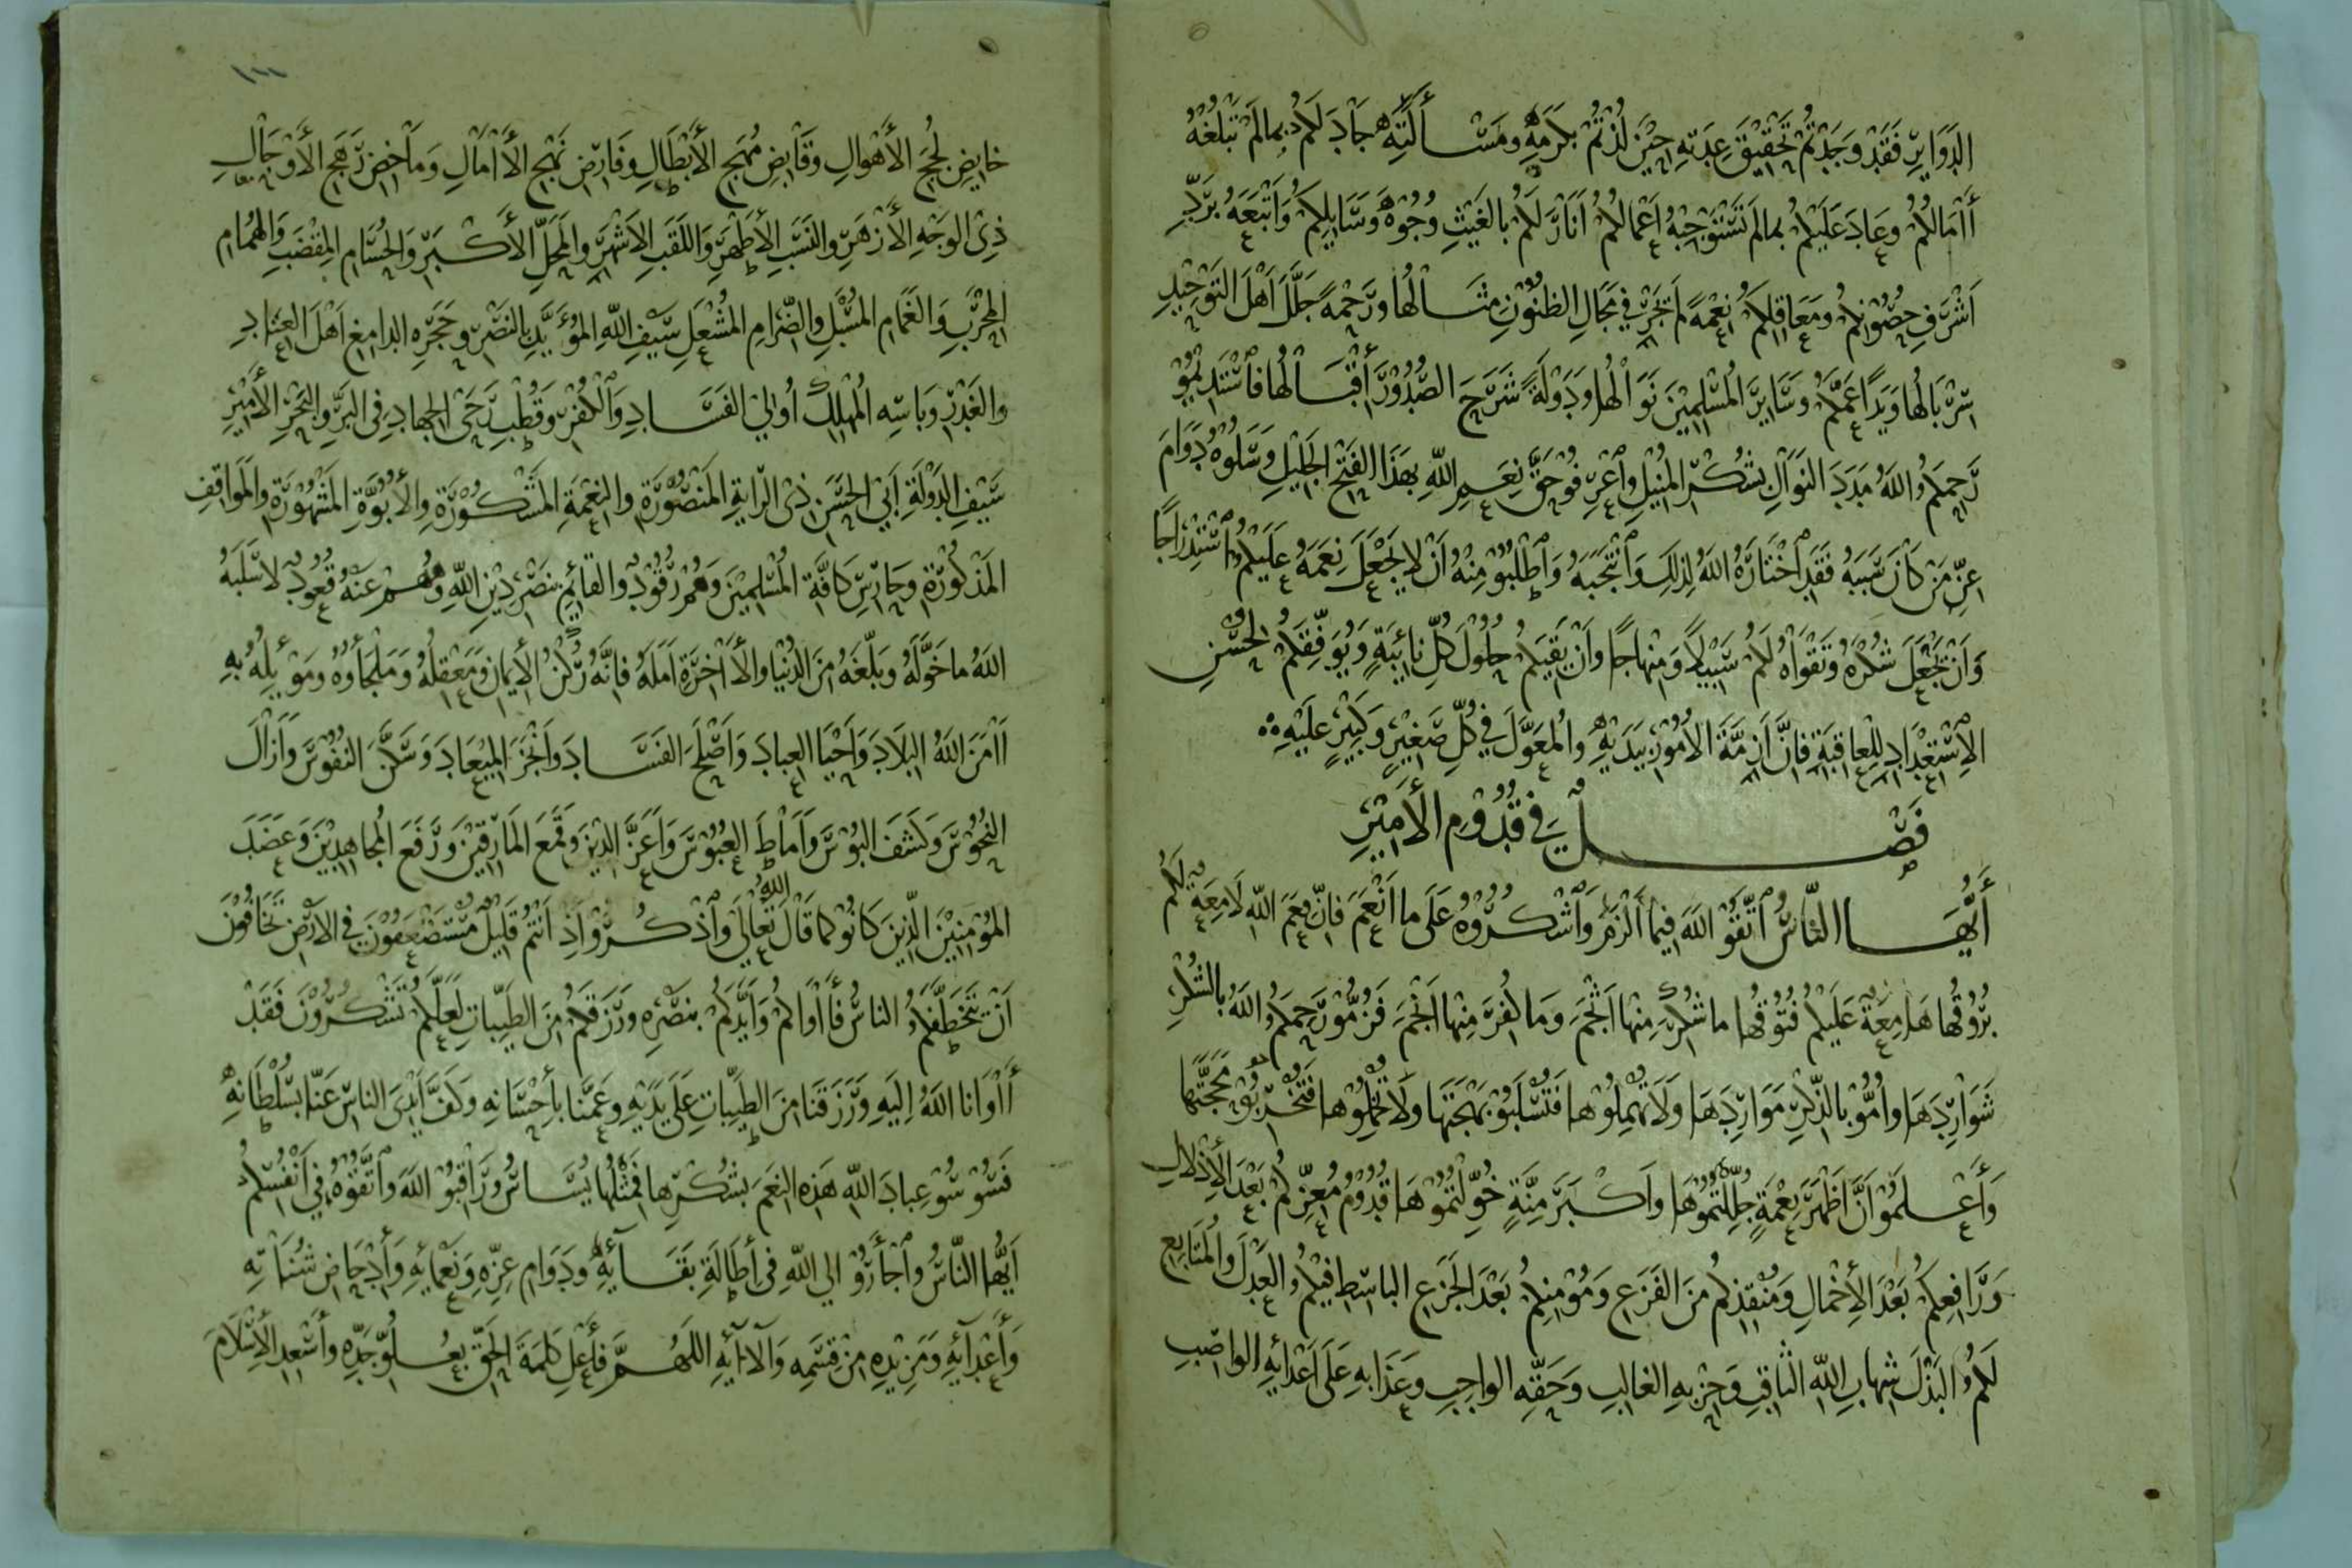 الدَّوَايِرِ فَقَدْ وَجَدْتُمْ تَحْقِيْقَ عِدَتِهِ حِيْنَ لُذْتُمْ بِكَرَمِهِ وَمَسْـأَلَتِهِ جَادَ لَكُمْ بِمَالَمْ تَبْلُغْهُ
أَامَالُكُمْ وَعَادَ عَلَيْكُمْ بِمالَمْ تَسْتَوْجِبْهُ أَعْمَالُكُمْ أَنَارَ لَكُمْ بِالغَيْثِ وُجُوْهَ وَسَايِلِكُمْ وَأَتْبَعَهُ بِرَدِّ
أَشْرَفِ حُصُوْنِكُمْ وَمَعَاقِلِكُمْ نِعْمَةً لَمْ تَجْرِ فِي مَجَالِ الظنُوْنِ مِثَـالُها وَرَحْمَةً جَلَّلَ أَهْلَ التَوْحِيْدِ
سِرْبَالُها وَيَدًا عَمَّكُمْ وَسَايِرَ المُسْلِمِيْنَ نَوَالُها وَدَوْلَةً شَرَحَ الصُّدُوْرَ أَقْبَـالُها فَاسْتَدِيْمُوْ
رَحِمَكُمُ اللهُ مَدَدَ النَوَالِ بِشُكْرِ المُنِيْلِ وَاعْرِفُوْ حَقَّ نِعَمِ اللهِ بِهَذَا الفَتْحِ الجَلِيْلِ وَسَلُوْهُ دَوَامَ
عِزِّ مَنْ كَانَ سَبَبَهُ فَقَدِ اخْتَارَهُ اللهُ لِذلِكَ وَانْتَجَبَهُ وَاطْلُبُوْ مِنْهُ أَنْ لا يَجْعَلَ نِعَمَهُ عَلَيْكُمُ اسْتِدْرَاجًا
وَأَنْ يَجْعَلَ شُكْرَهُ وَتَقْوَاهُ لَكُمْ سَبِيْلاً وَمِنْهاجًا وَأَنْ يَقِيَكُمْ حُلُوْلَ كُلِّ نَائِبَةٍ وَيُوَفِّقَكُمْ لِحُسْنِ
الاِسْتِعْدَادِ لِلْعاقِبَةِ فَانَّ أَزِمَّةَ الاُمُوْرِ بِيَدَيْهِ وَالمُعَوَّلَ فِي كُلِّ صَغِيْرٍ وَكَبِيْرٍ عَلَيْهِ
فَصْـــلٌ فِي قُدُوْمِ الأَمِيْرِ
أَيُّهَـا النَّاسُ اتَّقُوْ اللهَ فِيْمَا أَلْزَمَ وَاشْكُرُوْهُ عَلَى ما أَنْعَمَ فَانَّ نِعَمَ اللهِ لَامِعَةٌ لَكُمْ
بُرُوْقُها هَامِعَةٌ عَلَيْكُمْ فُتُوْقُها ما شُكِرَ مِنْها أَثْجَمَ وَمَا كُفِرَ مِنْها أَنْجَمَ فَزُمُّوْ رَحِمَكُمُ اللهُ بِالشُكْرِ
شَوَارِدَهَا وَأُمُّوْ بِالذِّكْرِ مَوَارِدَهَا وَلَا تُهْمِلُوْها فَتُسْلَبُوْ بَهْجَتَهَا وَلَا تُمِلُّوْها فَتُخْرِبُوْ مَحَجَّتَها
وَأَعْـلَمُوْ أَنَّ أَظْهَرَ نِعْمَةٍ جُلِّلْتُمُوْهَا وَأَكْبَرَ مِنَّةٍ خُوِّلْتُمُوْهَا قُدُوْمُ مُعِزِّكُمْ بَعْدَ الأَذْلالِ
وَرَافِعِكُمْ بَعْدَ الأَخْمَالِ وَمُنْقِذِكُمْ مِنَ الفَزَعِ وَمُؤْمِنِكُمْ بَعْدَ الجَزَعِ البَاسِطِ فِيْكُمُ العَدْلَ وَالمُتَابِعِ
لَكُمُ البَذْلَ شِهَابِ اللهِ الثَاقِبِ وَحِزْبِهِ الغَالِبِ وَحَقِّهِ الوَاجِبِ وَعَذَابِهِ عَلَى أَعْدَائِهِ الوَاصِبِ
١٠٠
خَايِضِ لُجَجِ الأَهْوالِ وَقَابِضِ مُهَجِ الأَبْطَالِ وَفَارِضِ نَهْجِ الأَامَالِ وَمَاخِضِ رَهَجِ الأَوْجَالِ
ذِى الوَجْهِ الأَزْهَرِ وَالنَسَبِ الأَطْهَرِ وَاللَقَبِ الأَشْهَرِ وَالمَحَلِّ الأَكْبَرِ وَالحُسَامِ المِقْضَبِ وَالهُمَامِ
المِحْرَبِ وَالغَمَامِ المُسْبَلِ وَالضِّرَامِ المُشْعَلِ سَيْفِ اللهِ المُؤَيَّدِ بِالنَصْرِ وَحَجَرِهِ الدامِغِ أَهْلَ العِنَادِ
وَالغَدْرِ وَبَاسِهِ المُهْلِكِ أُولِي الفَسَـادِ وَالكُفْرِ وَقُطْبِ رَحَى الجِهادِ فِى البَرِّ وَالبَحْرِ الأَمِيْرِ
سَيْفِ الدَوْلَةِ أَبِي الحَسَنِ ذِى الرَايَةِ المَنْصُوْرَةِ وَالنِعْمَةِ المَشْكُوْرَةِ وَالأُبُوَّةِ المَشْهُوْرَةِ وَالمَوَاقِفِ
المَذْكُوْرَةِ وَحَارِسِ كَافَّةِ المُسْلِمِيْنَ وَهُمْ رُقُوْدٌ وَالقَائِمِ بِنَصْرِ دِيْنِ اللهِ وَهُمْ عَنْهُ قُعُوْدٌ لا سَلَبَهُ
اللهُ ما خَوَّلَهُ وَبَلَّغَهُ مِنَ الدُنْيا وَالأَاخِرَةِ أَمَلَهُ فَانَّهُ رُكْنُ الأَيْمانِ وَمَعْقِلُهُ وَمَلْجَأُوُهُ وَمَوْئِلُهُ بِهِ
أَامَنَ اللهُ البِلَادَ وَأَحْيَا العِبادَ وَأَصْلَحَ الفَسَـادَ وَأَنْجَزَ المِيْعَادَ وَسَكَّنَ النُفُوْسَ وَأَزَالَ
النُحُوْسَ وَكَشَفَ البُوْسَ وَأَمَاطَ العُبُوْسَ وَأَعَزَّ الدِيْنَ وَقَمَعَ المَارِقِيْنَ وَرَفَعَ المُجاهِدِيْنَ وَعَضَدَ
المُؤْمِنِيْنَ الَّذِينَ كَانُوْ كَما قَالَ اللهُ تَعَالَى وَاذْكُرُوْ أِذْ أَنْتُمْ قَلِيْلٌ مُسْتَضْعَفُوْنَ فِى الأَرْضِ تَخَافُوْنَ
أَنْ يَتَخَطَّفَكُمُ الناسُ فَأَاوَاكُمْ وَأَيَّدَكُمْ بِنَصْرِهِ وَرَزَقَكُمْ مِنَ الطَيِّبَاتِ لَعَلَّكُمْ تَشْكُرُوْنَ فَقَدْ
أَاوَانا اللهُ إِلَيهِ وَرَزَقَنَا مِنَ الطَيِّبَاتِ عَلَى يَدَيْهِ وَعَمَّنا بِأِحْسَانِهِ وَكَفَّ أَيْدِىَ الناسِ عَنّا بِسُلْطَانِهِ
فَسُوْسُوْ عِبادَ اللهِ هَذِهِ النِعَمَ بِشُكْرِها فَمِثْلُها يُسَـاسُ وَرَاقِبُوْ اللهَ وَاتَّقُوْهُ فِي أَنْفُسِكُمْ
أَيُّهَا النَّاسُ وَاجْأَرُوْ الى اللهِ فِى أِطَالَةِ بَقَـائِهِ وَدَوَامِ عِزِّهِ وَنَعْمَائِهِ وَأِدْحَاضِ شُنَاتِهِ
وَأَعْدَآئِهِ وَمَزِيْدِهِ مِنْ قِسَمِهِ وَآلَآئِهِ اللَهُـمَّ فَأَعْلِ كَلِمَةَ الحَقِّ بِعُـلُوِّ جَدِّهِ وَأَسْعِدِ الأِسْلَامَ